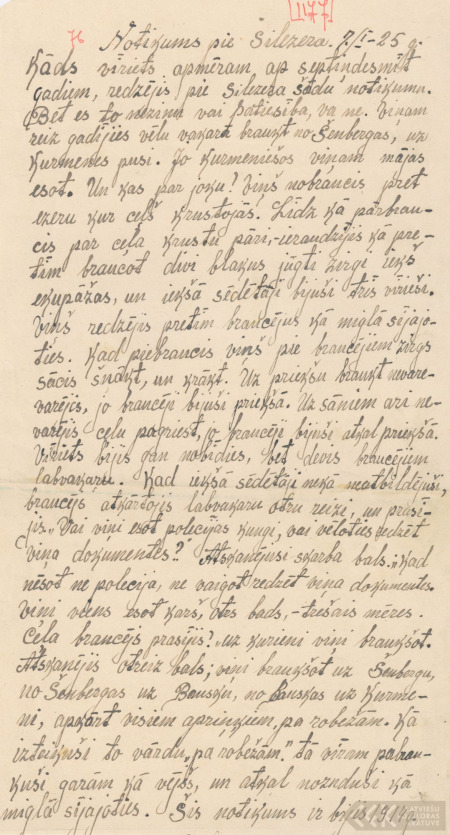 [1177]
76
Notikums pie Silezera. 7/I-25 g.
Kāds vīriets apmēram ap septiņdesmit
gadum, redzējis pie Silezera šādu notikumu.
Bet es to nezinu vai patiesība, va ne. Viņam
reiz gadījies vēlu vakarā braukt no Šenbergas, uz
Kurmenes pusi. Jo Kurmeniešos viņam mājas
esot. Un kas par joku! Viņš nobraucis pret
ezeru kur ceļš krustojās. Līdz kā pārbrau-
cis par ceļa krustu pāri,-ieraudzījis kā pre-
tīm braucot divi blakus jūgti zirgi iekš
ekupāžas, un iekšā sēdētāji bijuši trīs vīrieši.
Viņš redzējis pretīm braucējus kā miglā sijājo-
ties. Kad piebraucis viņš pie braucējiem zirgs
sācis šņākt, un krākt. Uz priekšu braukt nevare-
varējis, jo braucēji bijuši priekšā. Uz sāniem ari ne-
varējis ceļu pagriest, jo braucēji bijuši atkal priekšā.
Vīriets bijis gan nobīdies, bet devis braucējiem
labvakaru. Kad iekšā sēdētāji nekā neatbildējuši,
braucējs atkārtojis labvakaru otru reizi, un prasī-
jis „Vai viņi esot polecijas kungi, vai vēloties redzēt
viņa dokumentes? Atskanējusi skarba bals: „Kad
nēšot ne polecija, ne vaigot redzēt viņa dokuments.
Viņi viens esot karš, otrs bads, - trešais mēres.
Ceļa braucējs prasījis? „uz kurieni viņi braukšot.
Atskanējis otreiz bals; viņi braukšot uz Šenbergu,
no Šenbergas uz Bausku, no Bauskas uz Kurme-
ni, apkārt visiem apriņķiem, pa robežām. Kā
izteikuši to vārdu „pa robežām." tā viņam pabrau-
kuši, garām kā vējšs, un atkal nozuduši kā
miglā sijājoties. Šis notikums ir bijis 1914 g.
LATVIEŠU
FOLKLORAS
KRĀTUVE